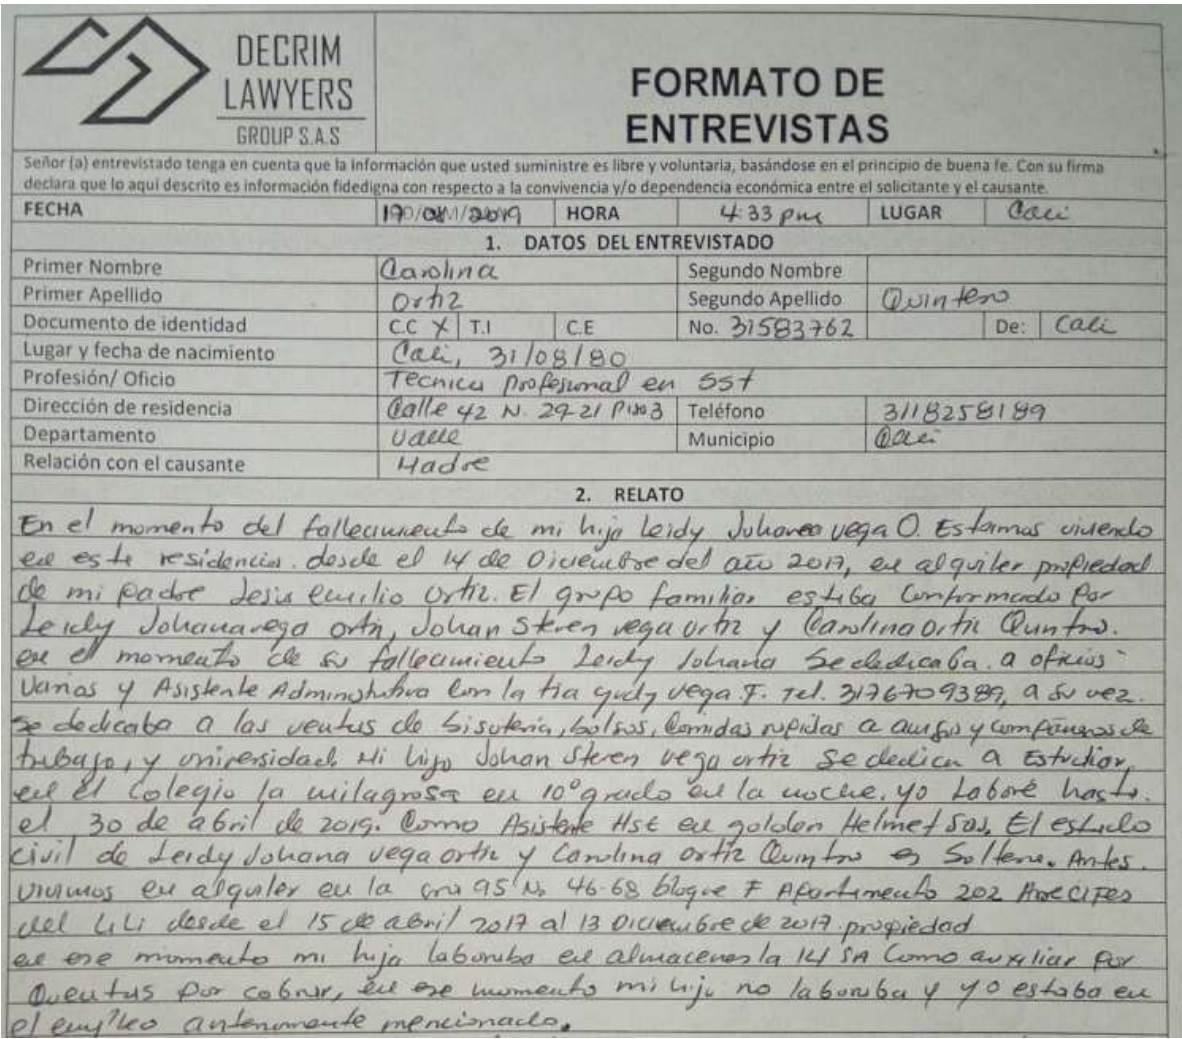 DECRIM
LAWYERS
GROUP S.A.S
FORMATO DE
ENTREVISTAS
Señor (a) entrevistado tenga en cuenta que la información que usted suministre es libre y voluntaria, basándose en el principio de buena fe. Con su firma
declara que lo aquí descrito es información fidedigna con respecto a la convivencia y/o dependencia económica entre el solicitante y el causante.
FECHA /2019 HORA 4:33 pm LUGAR Cali
1. DATOS DEL ENTREVISTADO
Primer Nombre Carolina Segundo Nombre
Primer Apellido Ortiz Segundo Apellido Quintero
Documento de identidad C.C X T.I C.E No. 31583762 De: Cali
Lugar y fecha de nacimiento Cali, 31/08/80
Profesión/ Oficio Tecnica Profesional en SST
Dirección de residencia Calle 42 N. 29-21 Piso 3 Teléfono 3118258189
Departamento Valle Municipio Cali
Relación con el causante Madre
2. RELATO
En el momento del fallecimiento de mi hija Leidy Johana vega O. Estamos viviendo
en esta residencia. desde el 14 de Diciembre del año 2017, en alquiler propiedad
de mi padre Jesus emilio ortiz. El grupo familiar estaba Conformado por
Leidy Johana vega ortiz, Johan Steven vega ortiz y Carolina Ortiz Quintro.
en el momento de su fallecimiento Leidy Johana Se dedicaba a oficios
varios y Asistente Administrativa con la tia yudy vega F. Tel. 3176709389, a su vez.
se dedicaba a las ventas de bisuteria, bolsos, Comidas rapidas a amigos y compañeros de
trabajo, y universidad. Mi hijo Johan Steven vega ortiz Se dedica a Estudiar,
en el Colegio la milagrosa en 10° grado en la noche. yo Laboré hasta
el 30 de abril de 2019. Como Asistente Hse en golden Helmet Sas. El estado
civil de Leidy Johana vega ortiz y Carolina ortiz Quintro es Soltera. Antes
vivimos en alquiler en la cra 95 No 46-68 bloque F Apartamento 202 Arrecifes
del Lili desde el 15 de abril 2017 al 13 Diciembre de 2017. propiedad
en ese momento mi hija laboraba en almacenes la 14 SA Como auxiliar por
Cuentas por cobrar, en ese momento mi hijo no laboraba y yo estaba en
el empleo anteriormente mencionado.